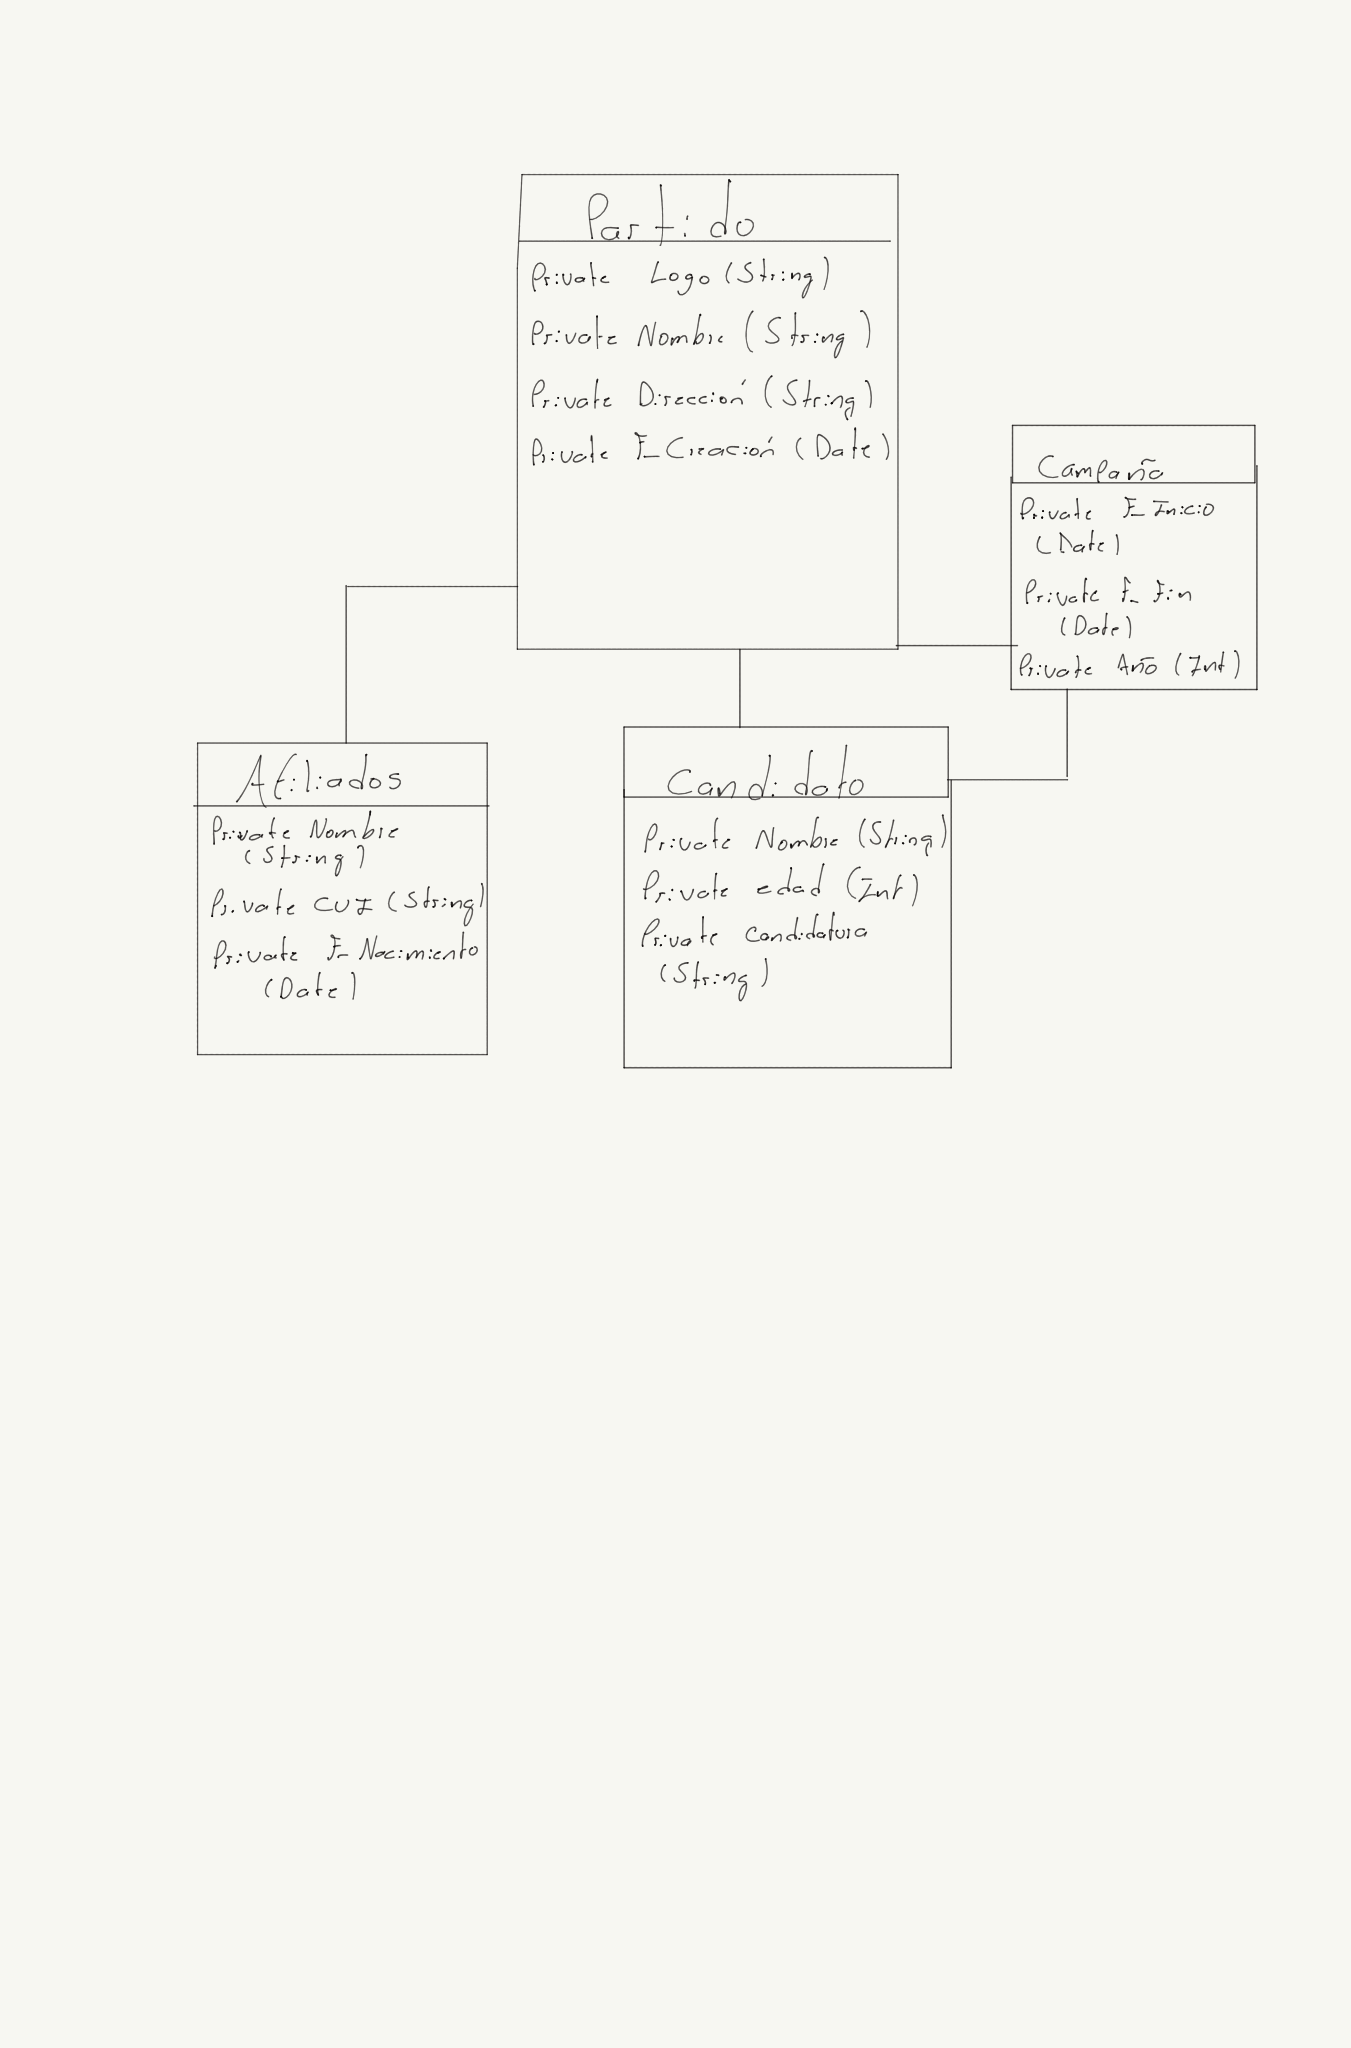 Partido
Private Logo (String)
Private Nombre (String)
Private Dirección (String)
Private F_Creación (Date)
Campaña
Private F_Inicio
(Date)
Private F_Fin
(Date)
Private Año (Int)
Afiliados
Private Nombre
(String)
Private CUI (String)
Private F_Nacimiento
(Date)
Candidato
Private Nombre (String)
Private edad (Int)
Private candidatura
(String)